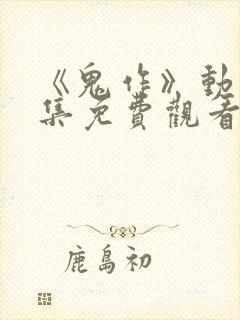 《鬼作》動
集免費觀看
鹿島初